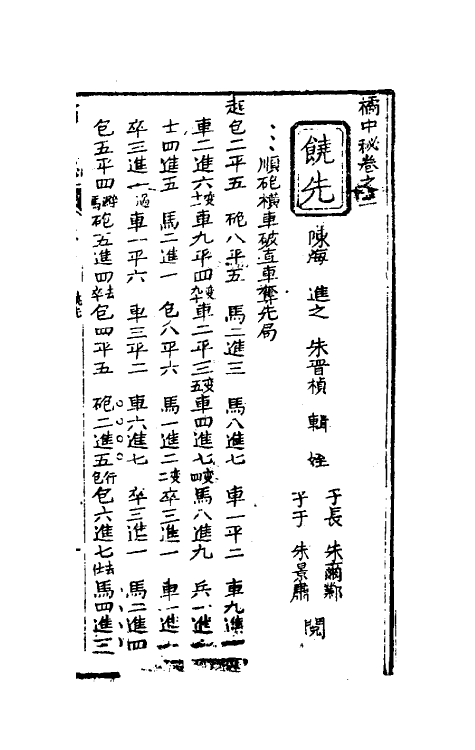 橘中秘卷之二
饒先
陳海 進之 朱晋楨 輯 姪
子長 朱爾鄴
子于 朱景蕭 閱
順砲橫車破直車奪先局
起包二平五 砲八平五 馬二進三 馬八進七 車一平二 車九進一
車二進六變 車九平四變 車二平三五變 車四進七四變 馬八進九 兵一進一
士四進五 馬二進一 包八平六 馬一進二二變 卒三進一 車一進一
卒三進一過 車一平六 車三平二 車六進七 卒三進一 馬二進四
包五平四 砲五進四去卒 包四平五 砲二進五行包 包六進七去仕 馬四進三